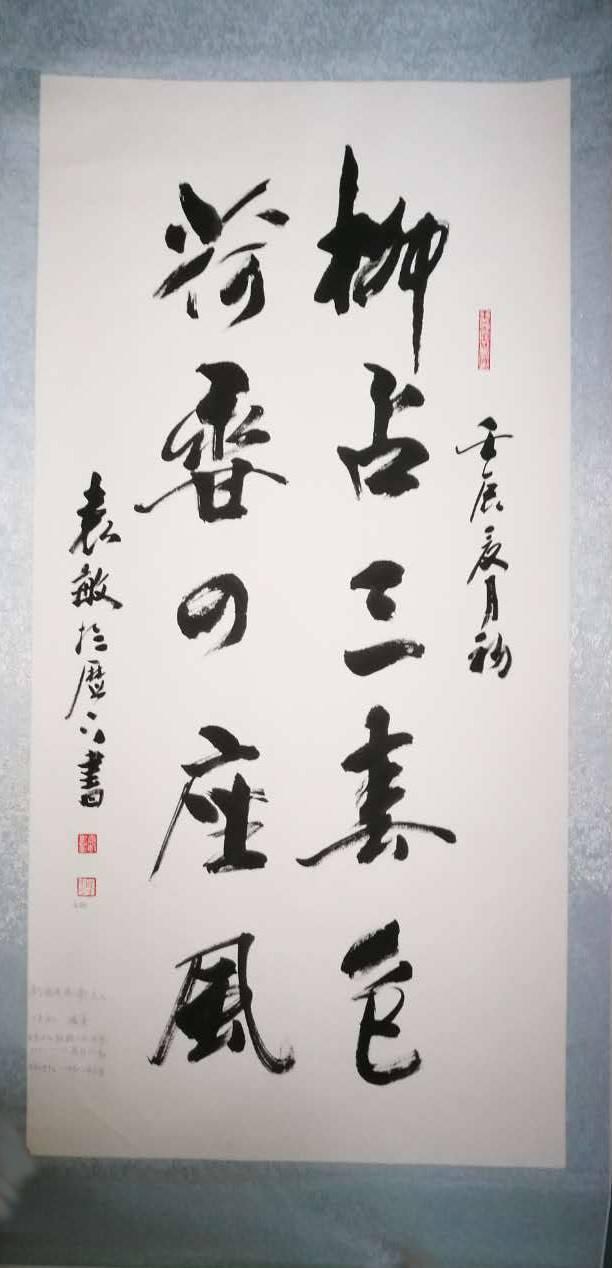 壬辰夏月初
柳占三春色
荷香四座风
袁敏於历下书